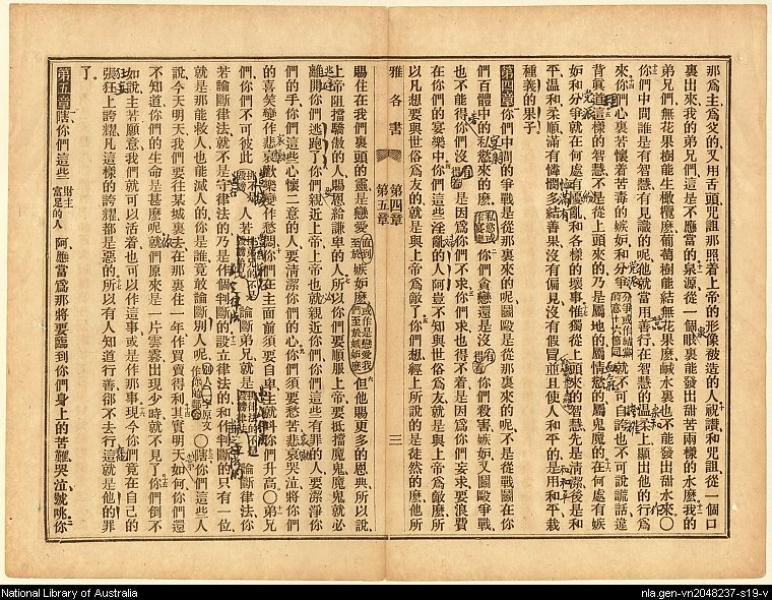 那爲主爲父的又用舌頭咒詛那照着上帝的形像被造的人祝讚和咒詛從一個口
裏出來我的弟兄們這是不應當的泉源從一個眼裏能發出甜苦兩樣的水麽我的
弟兄們無花果樹能生橄欖麽葡萄樹能結無花果麽鹹水裏也不能發出甜水來〇
你們中間誰是有智慧有見識的呢他就當用善行在智慧的溫柔上顯出他的行爲
來你們心裏若懷着苦毒的嫉妒和分爭分爭或作結黨的意十六節同就不可自誇也不可說謊話違
背眞道這樣的智慧不是從上頭來的乃是屬地的屬情慾的屬鬼魔的在何處有嫉
妒和分爭就在何處有擾亂和各樣的壞事惟獨從上頭來的智慧先是淸潔後是和
平溫和柔順滿有憐憫多結善果沒有偏見沒有假冒並且使人和平的是用和平栽
種義的果子
第四章你們中間的爭戰是從那裏來的呢鬭毆是從那裏來的呢不是從戰鬭在你
們百體中的私慾來的麽私慾或作宴樂你們貪戀還是沒有你們殺害嫉妒又鬭毆爭戰
也不能得你們沒得着是因爲你們不求你們求也得不着是因爲你們妄求要浪費
在你們的宴樂中你們這些淫亂的人阿豈不知與世俗爲友就是與上帝爲敵麽所
以凡想要與世俗爲友的就是與上帝爲敵了你們想經上所說的是徒然的麽他所
雅各書 第四章 第五章 三
賜住在我們裏頭的靈是戀愛至於嫉妒麽或作是戀愛我們至於嫉妒麽但他賜更多的恩典所以說
上帝阻擋驕傲的人賜恩給謙卑的人所以你們要順服上帝要抵擋魔鬼魔鬼就必
離開你們逃跑了你們親近上帝上帝也就親近你們你們這些有罪的人要潔淨你
們的手你們這些心懷二意的人要清潔你們的心你們須要愁苦悲哀哭泣將你們
的喜笑變作悲哀歡樂變作愁悶你們在主面前須要自卑主就叫你們升高〇弟兄
們你們不可彼此論斷人若論斷弟兄就是論斷律法你
若論斷律法就不是守律法的乃是作個判斷的設立律法的和作判斷的只有一位
就是那能救人也能滅人的你是誰竟敢論斷別人呢別人原文作你隣舍〇嗐你們這些人
說今天明天我們要往某城裏去在那裏住一年作買賣得利其實明天如何你們還
不知道你們的生命是甚麽呢就們原來是一片雲霧出現少時就不見了你們倒不
如說主若願意我們就可以活着也可以作這事或是作那事現今你們竟在自己的
張狂上誇耀凡這樣的誇耀都是惡的所以有人知道行善卻不去行這就是他的罪
了
第五章嗐你們這些財主富足的人阿應當爲那將要臨到你們身上的苦難哭泣號咷你
National Library of Australia
nla.gen-vn2048237-s19-v